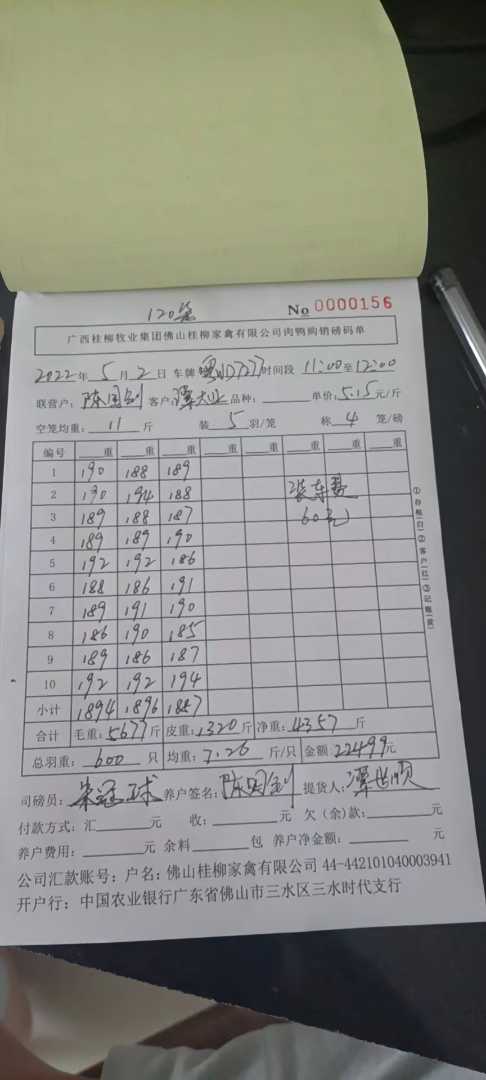 120笼
No 0000156
广西桂柳牧业集团佛山桂柳家禽有限公司肉鸭购销磅码单
2022年 5月 2日 车牌 粤 D7277 时间段 11:00至12:00
联营户: 陈国剑 客户: 品种: 单价: 5.15元/斤
空笼均重: 11 斤 装 5 羽/笼 称 4 笼/磅
编号 重 重 重 重 重 重 重 重
1 190 188 189
2 190 194 188 装车费
3 189 188 187 60元
4 189 189 190
5 192 192 186
6 188 186 191
7 189 191 190
8 186 190 185
9 189 186 187
10 192 192 194
小计 1894 1896 1887
合计 毛重: 5677斤 皮重: 1320斤 净重: 4357 斤
总羽重: 600 只 均重: 7.26 斤/只 金额 22499元
司磅员: 朱冠球 养户签名: 陈国剑 提货人: 覃世顺
付款方式: 汇 元 收: 元 欠(余)款: 元
养户费用: 元 余料 包 养户净金额: 元
公司汇款账号: 户名: 佛山桂柳家禽有限公司 44-442101040003941
开户行: 中国农业银行广东省佛山市三水区三水时代支行
①存根(白)②客户(红)③记账(黄)